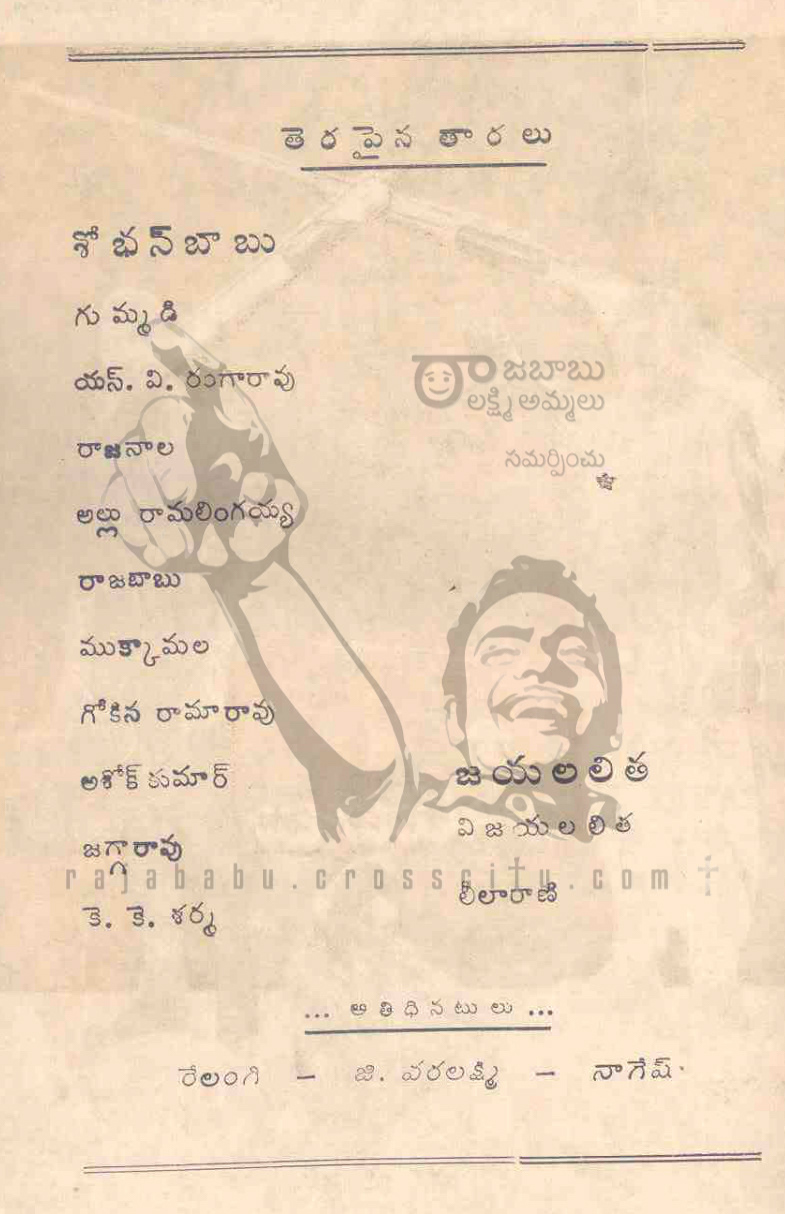 తెరపైన తారలు
శోభన్ బాబు
గుమ్మడి
యస్. వి. రంగారావు
రాజనాల
అల్లు రామలింగయ్య
రాజబాబు
ముక్కామల
గోకిన రామారావు
అశోక్ కుమార్
జగ్గారావు
కె. కె. శర్మ
రాజబాబు
లక్ష్మీ అమ్మలు
సమర్పించు
జయలలిత
విజయలలిత
లీలారాణి
rajababu.crosscity.com
... అతిధినటులు ...
రేలంగి — జి. వరలక్ష్మి — నాగేష్